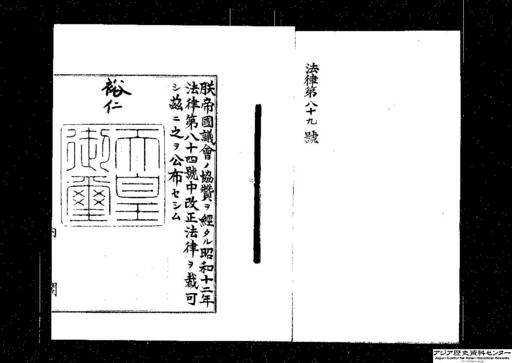 法律第八十九號
朕帝國議會ノ協贊ヲ經タル昭和十二年
法律第八十四號中改正法律ヲ裁可
シ茲ニ之ヲ公布セシム
裕仁
天皇
御璽
内閣
アジア歴史資料センター
Japan Center for Asian Historical Records